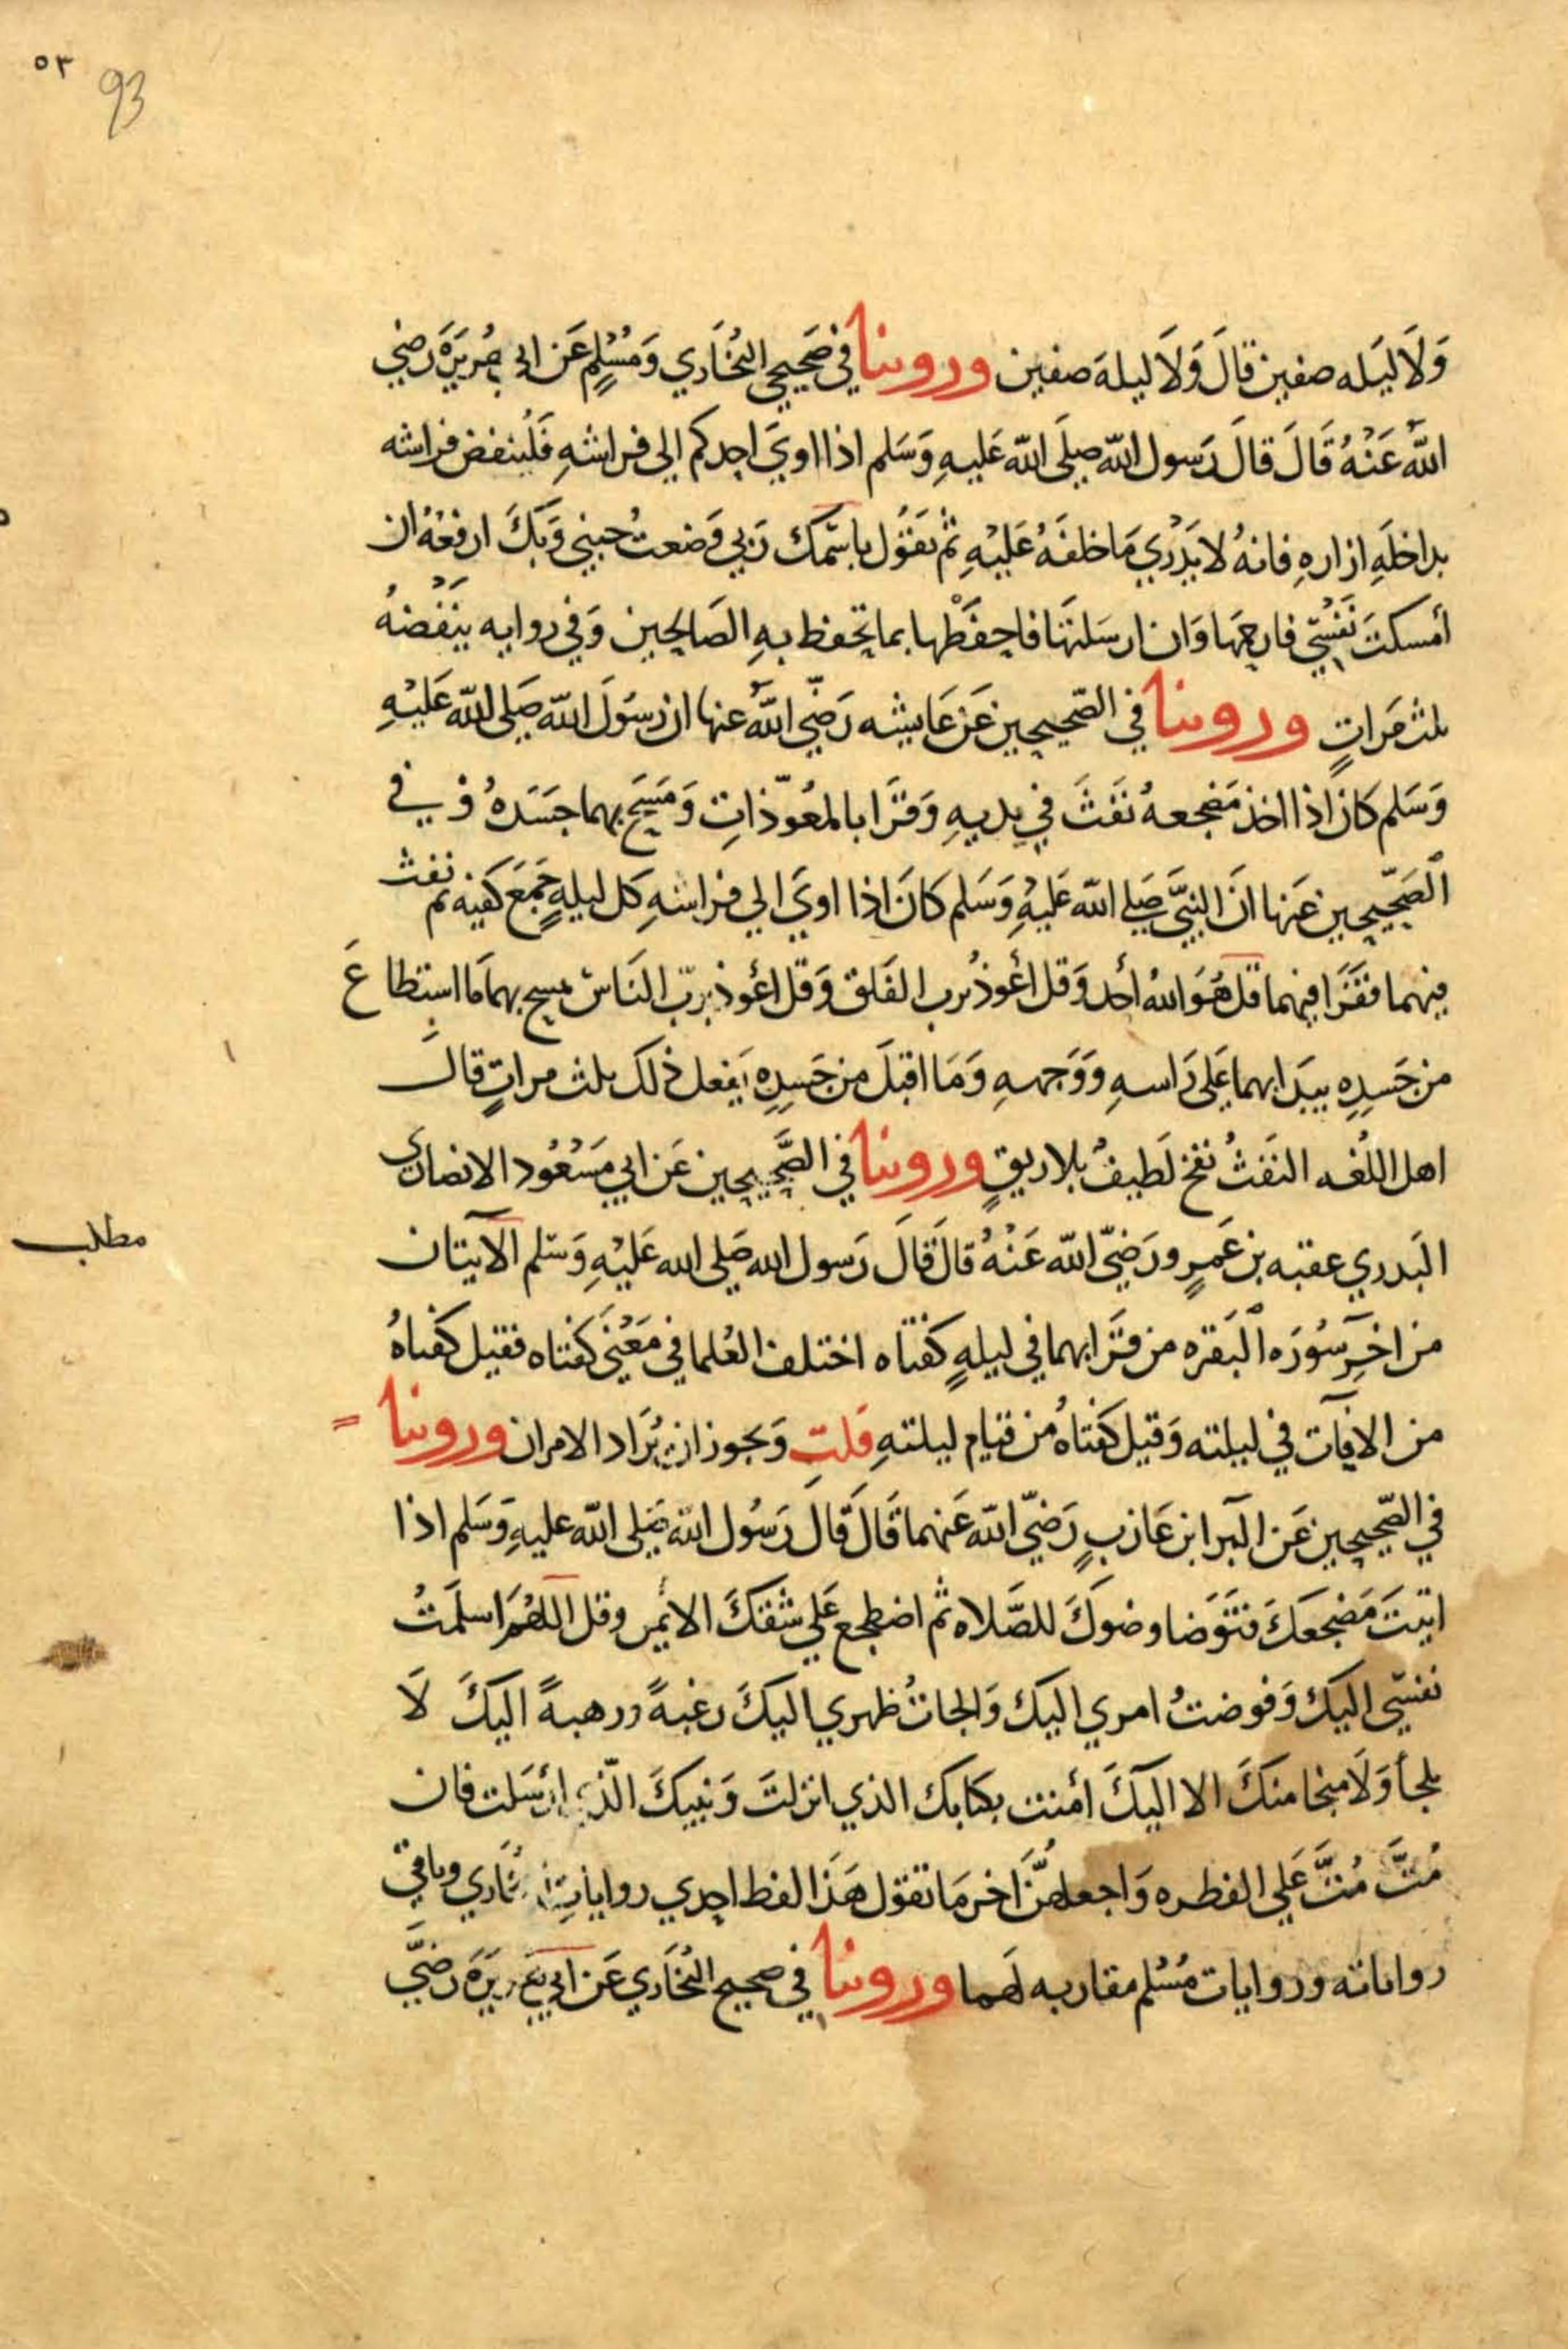 ٥٣
93
وَلَا لَيلَه صفين قالَ وَلَا ليلهَ صفين وروينا في صَحيحي البُخاري وَمُسْلِمٍ عَن ابي هُريَرَةَ رضي
اللهُ عَنْهُ قَالَ قالَ رَسول الله صلَى الله عَليهِ وَسَلم اذا اويَ احدكم الي فراشهِ فَلْينفض فراشه
بداخلَهِ ازارهِ فانهُ لا يَدْري مَا خلفَهُ عَليْهِ ثم يَقُول باسْمكَ رَبي وَضعتُ جنبي وَبكَ ارفعْهُ ان
أمسكتَ نَفسْي فارحمهَا وَان ارسَلتهَا فاحفَظْها بما تحفظ بهِ الصَالحين وَفي روايه ينَفُضْهُ
ثلث مَراتٍ وروينا في الصّحيحين عَن عَايشه رَضّي اللهُ عنها ان رسُولَ الله صَلى الله عَليْهِ
وَسَلم كان اذا اخذ مَضجعهُ نَفَثَ في يديهِ وَقرَا بالمعُوّذاتِ وَمَسَحَ بهما جسَدَهُ وفي في
الصَحّيحين عَنها انَ النبيَّ صَلي الله عَليْهِ وَسَلم كانَ اذا اويَ الي فراشهِ كل ليلهٍ جَمَعَ كَفيه ثم نفث
فيهما فقَرَا فيهما قل هُوَ اللهُ أحد وَقل أعُوذُ برب الفَلق وَقل اعُوذ بربّ النَاسْ مسح بهما مَا استطاعَ
من جَسدِهِ يبدَا بهما عَلى رَاسهِ وَوَجههِ وَمَا اقبلَ من جَسدِهِ يَفعل ذلكَ ثلث مراتٍ قالَ
اهل اللُغه النَفثُ نفخ لَطيفُ بلا ريقٍ وروينا في الصَّحيحين عَن ابي مَسْعُود الانصاري
البَدري عقبه بن عَمرٍو رَضيّ الله عَنْهُ قالَ قَالَ رَسول الله صَلى الله عَليْهِ وَسَلم الآيتان
مطلب
من اخرِ سُورَه البَقره من قرَا بهما في ليلهٍ كفتاه اختلف العُلما في مَعْنَي كفتاه فقيل كفتاهُ
من الافآت في ليلته وَقيل كفتاهُ من قيام ليلتهِ قلت وَيجوز ان يُرَاد الامران وروينا
في الصّحيحين عَن البَرا ابن عَازبٍ رَضيّ الله عَنهما قَالَ قَالَ رَسُول الله صَلى الله عليهِ وَسَلم اذا
اتيتَ مَضجَعَكَ فتَوَضا وضوَكَ للصَّلاه ثم اضطجع عَلي شقكَ الايمن وقل اللهُمَ اسلمَتُ
نفسّي اليكَ وَفوضتُ امري اليك وَالجاتُ ظهري اليكَ رغبةً ورهبةً اليكَ لَا
ملجأ وَلَا منجا منكَ الا اليكَ أمنت بكتابك الذي انزلتَ وَنبيكَ الّذي ارْسَلت فان
مُتَّ مُتَّ عَلي الفطره وَاجعلهُنَّ اخر مَا تقول هَذا لفظ احدي روايات البُخاري وباقي
رواياته وروايات مُسْلم مقاربه لَهما وروينا في صحيح البُخَاري عَن ابي هريرَة رضيَّ